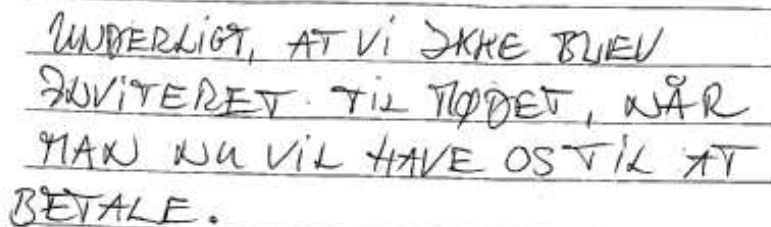 UNDERLIGT, AT Vi IKKE BLEV
INVITERET. TIL MØDET, NÅR
MAN NU VIL HAVE OS TIL AT
BETALE.